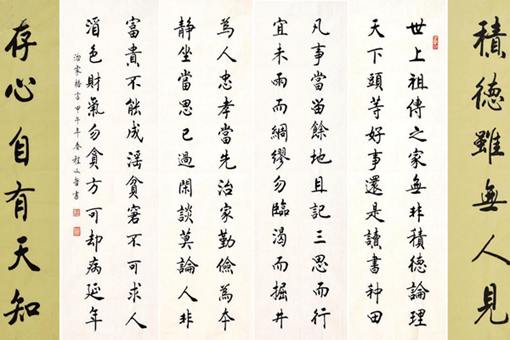 積德雖無人見
世上祖傳之家無非積德論理
天下頭等好事還是讀書种田
凡事當留餘地且記三思而行
宜未雨而綢繆勿臨渴而掘井
為人忠孝當先治家勤儉為本
靜坐當思己過閑談莫論人非
富貴不能成淫貧窮不可求人
酒色財氣勿貪方可却病延年
治家格言甲午年春程文書
存心自有天知